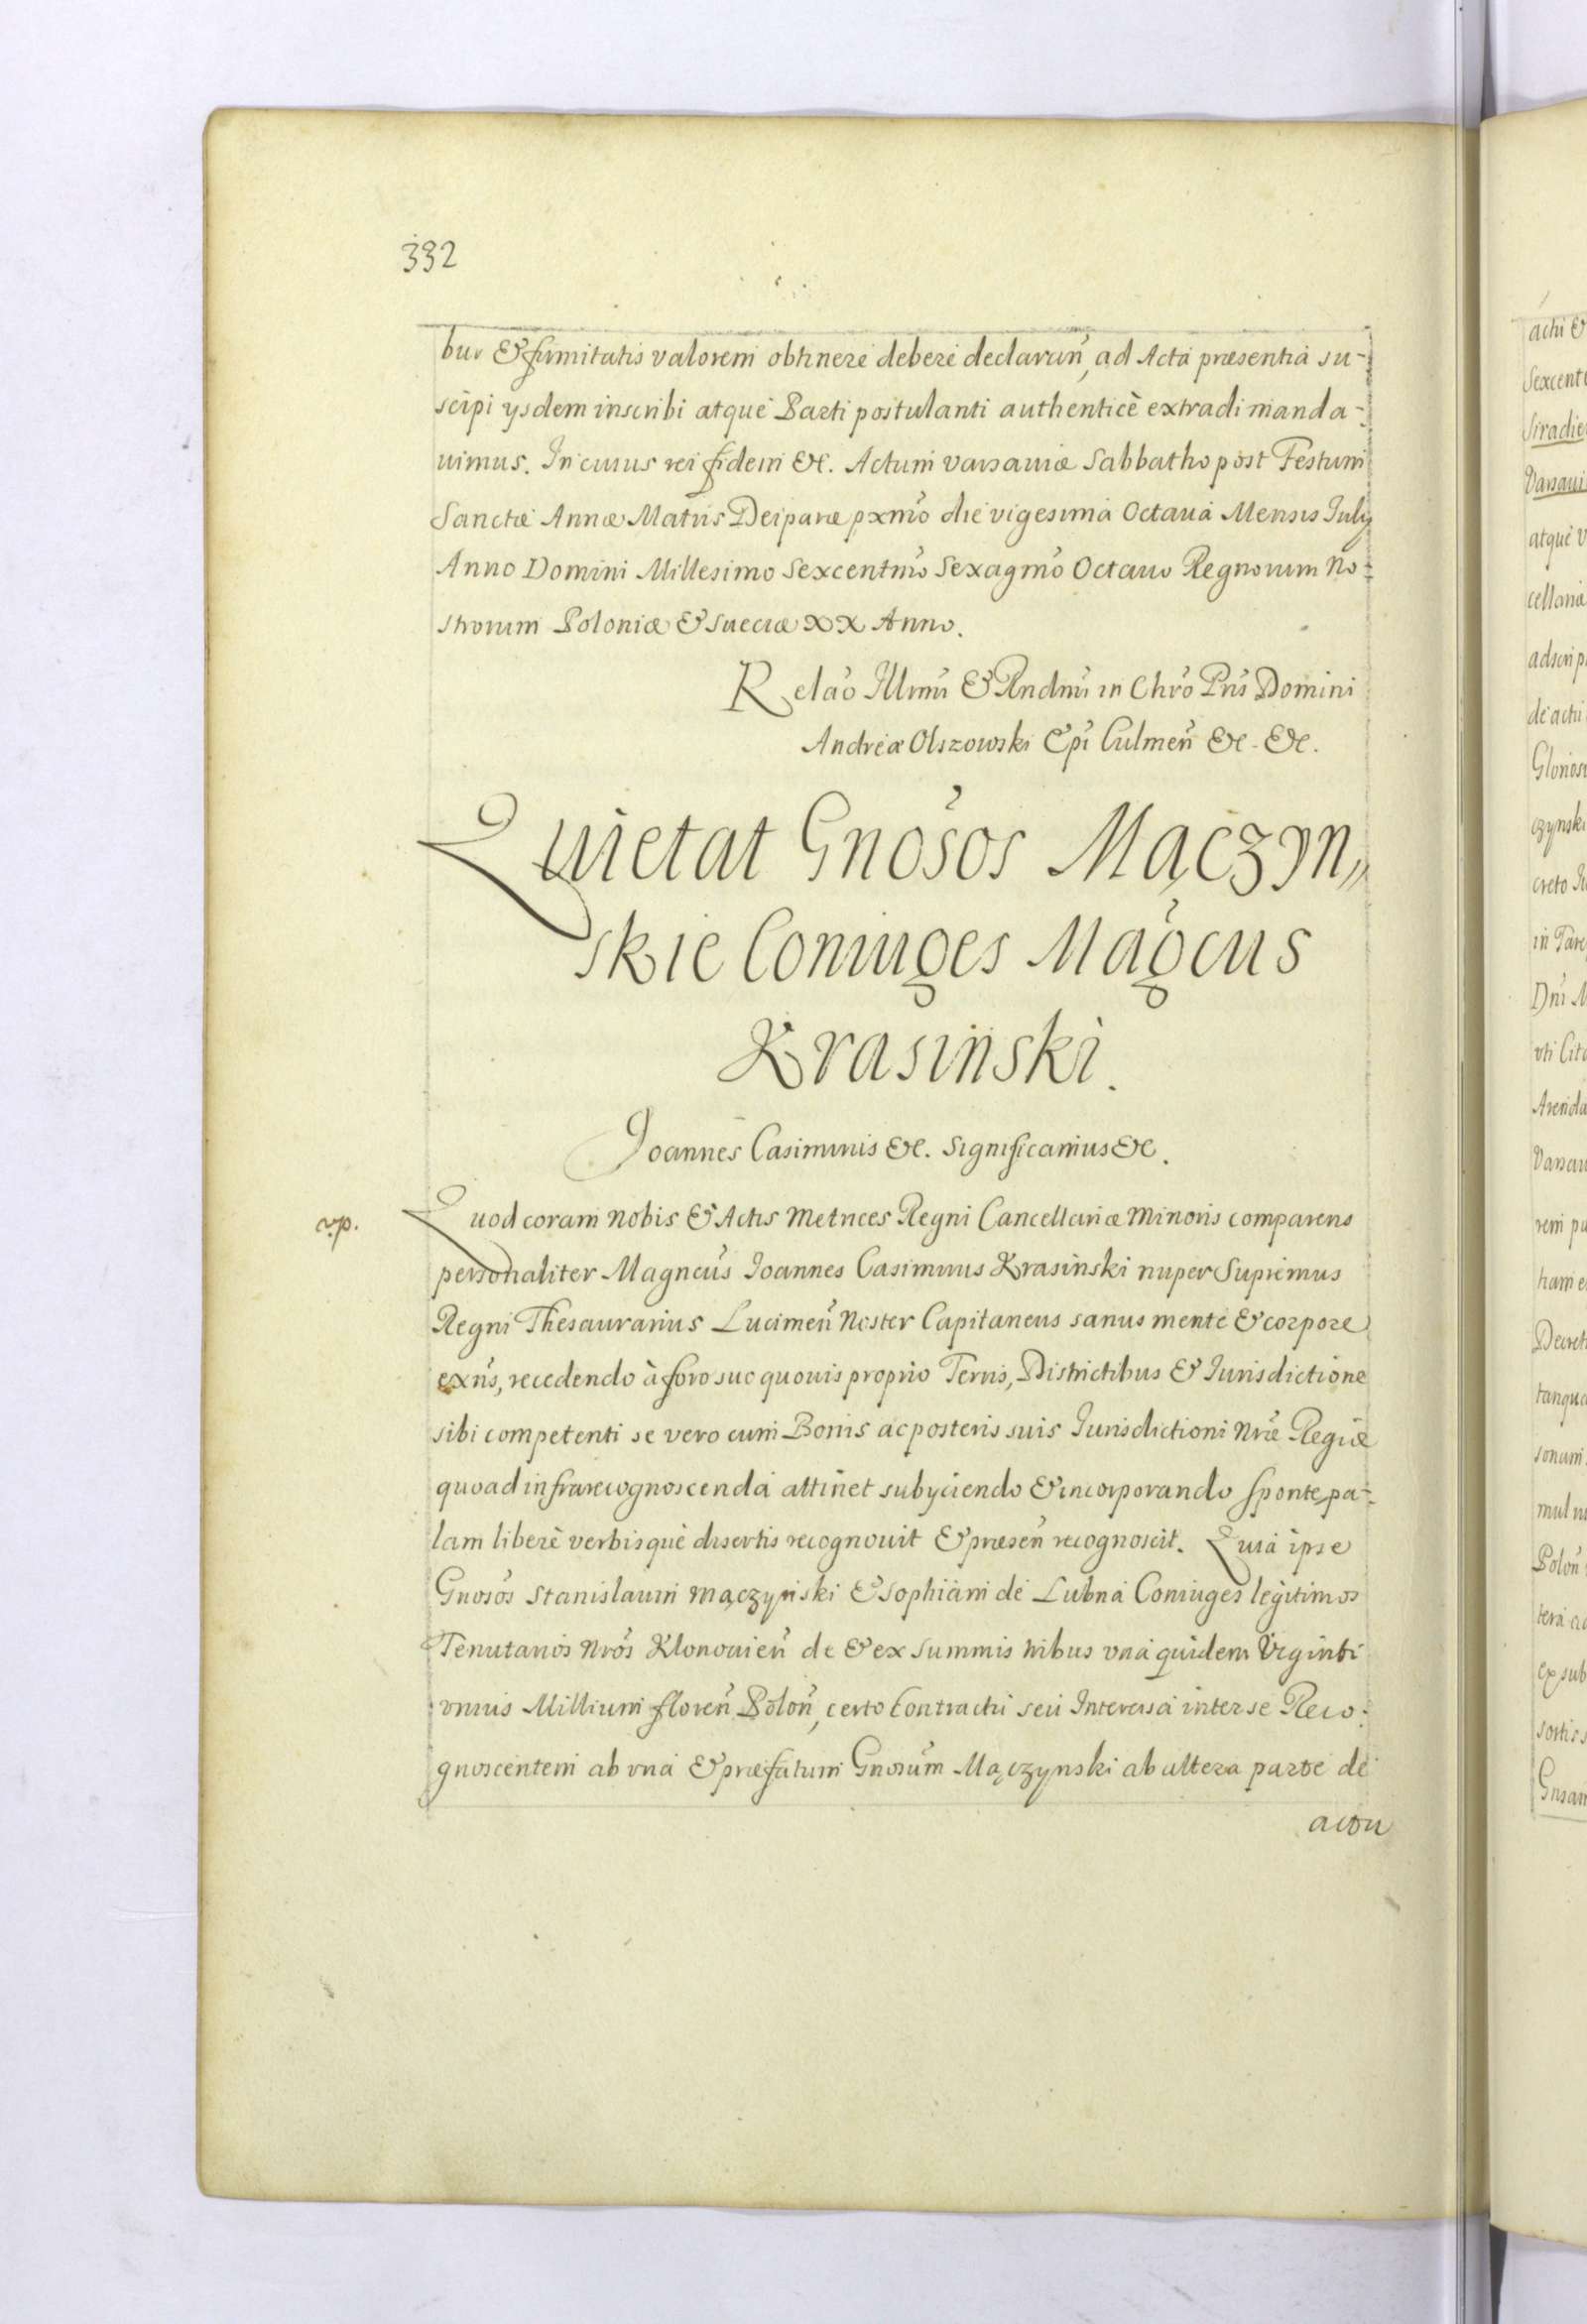 332
bur & firmitatis valorem obtinere deberè declarun̄, ad Acta præsentia su-
scipi ysdem inscribi atque Parti postulanti authenticè extradi manda-
uimus. In cuius rei fidem &c. Actum varsauiæ Sabbatho post Festum
Sanctæ Annæ Matris Deiparæ pxmo die vigesima Octaua Mensis July
Anno Domini Millesimo Sexcentmo Sexagmo Octauo Regnorum No-
strorum Poloniæ & Sueciæ XX Anno.
Relao Illmi & Rndmi in Chro Pris Domini
Andreæ Olszowski Epi Culmen̄ &c. &c.
Quietat Gnosos Mączyn„
skie Coniuges Magcus
Krasinski.
Joannes Casimirus &c. Significamus &c.
Quod coram nobis & Actis Metrices Regni Cancellariæ Minoris comparens
personaliter Magncus Joannes Casimirus Krasinski nuper Supremus
Regni Thesaurarius Lucimen̄ Noster Capitaneus sanus mente & corpore
exns, recedendo à foro suo quouis proprio Terris, Districtibus & Jurisdictione
sibi competenti se vero cum Bonis ac posteris suis Jurisdictioni nræ Regiæ
quoad infrarecognoscenda attinet subyciendo & incorporando sponte pa-
lam liberè verbisque disertis recognouit & præsen̄ recognoscit. Quia ipse
Gnosos Stanislaum Mączynski & Sophiam de Lubna Coniuges legitimos
Tenutarios nros Klonouien̄ de & ex summis tribus vna quidem Viginti
vnius Millium floren̄ Polon̄, certo Contractu seu Intercisa inter se Reco-
gnoscentem ab vna & præfatum Gnosum Mączynski ab altera parte de
actu